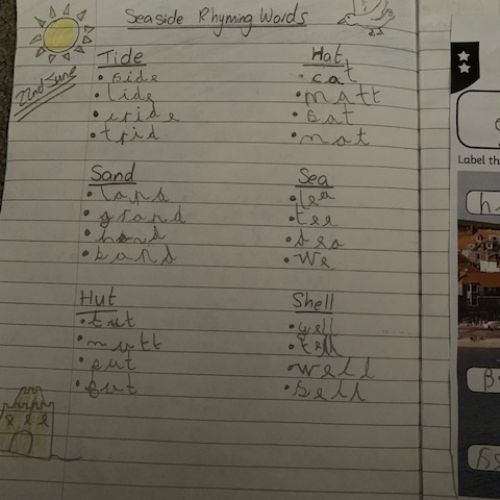 Seaside Rhyming Words
22nd June
Tide
• side
• lide
• trid
Hat
• cat
• matt
• sat
• nat
Sand
• land
• grand
• hand
• band
Sea
• tee
• we
Hut
• tut
• nutt
• but
Shell
• yell
• tell
• well
• bell
Label th